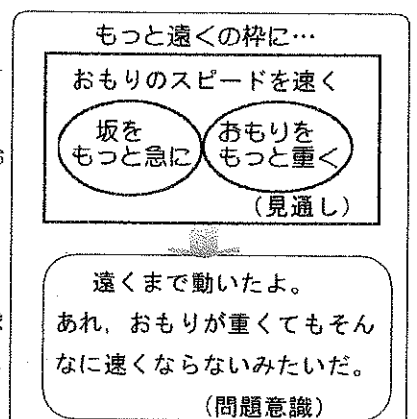 もっと遠くの枠に…
おもりのスピードを速く
坂を
もっと急に
おもりを
もっと重く
(見通し)
遠くまで動いたよ。
あれ，おもりが重くてもそん
なに速くならないみたいだ。
(問題意識)